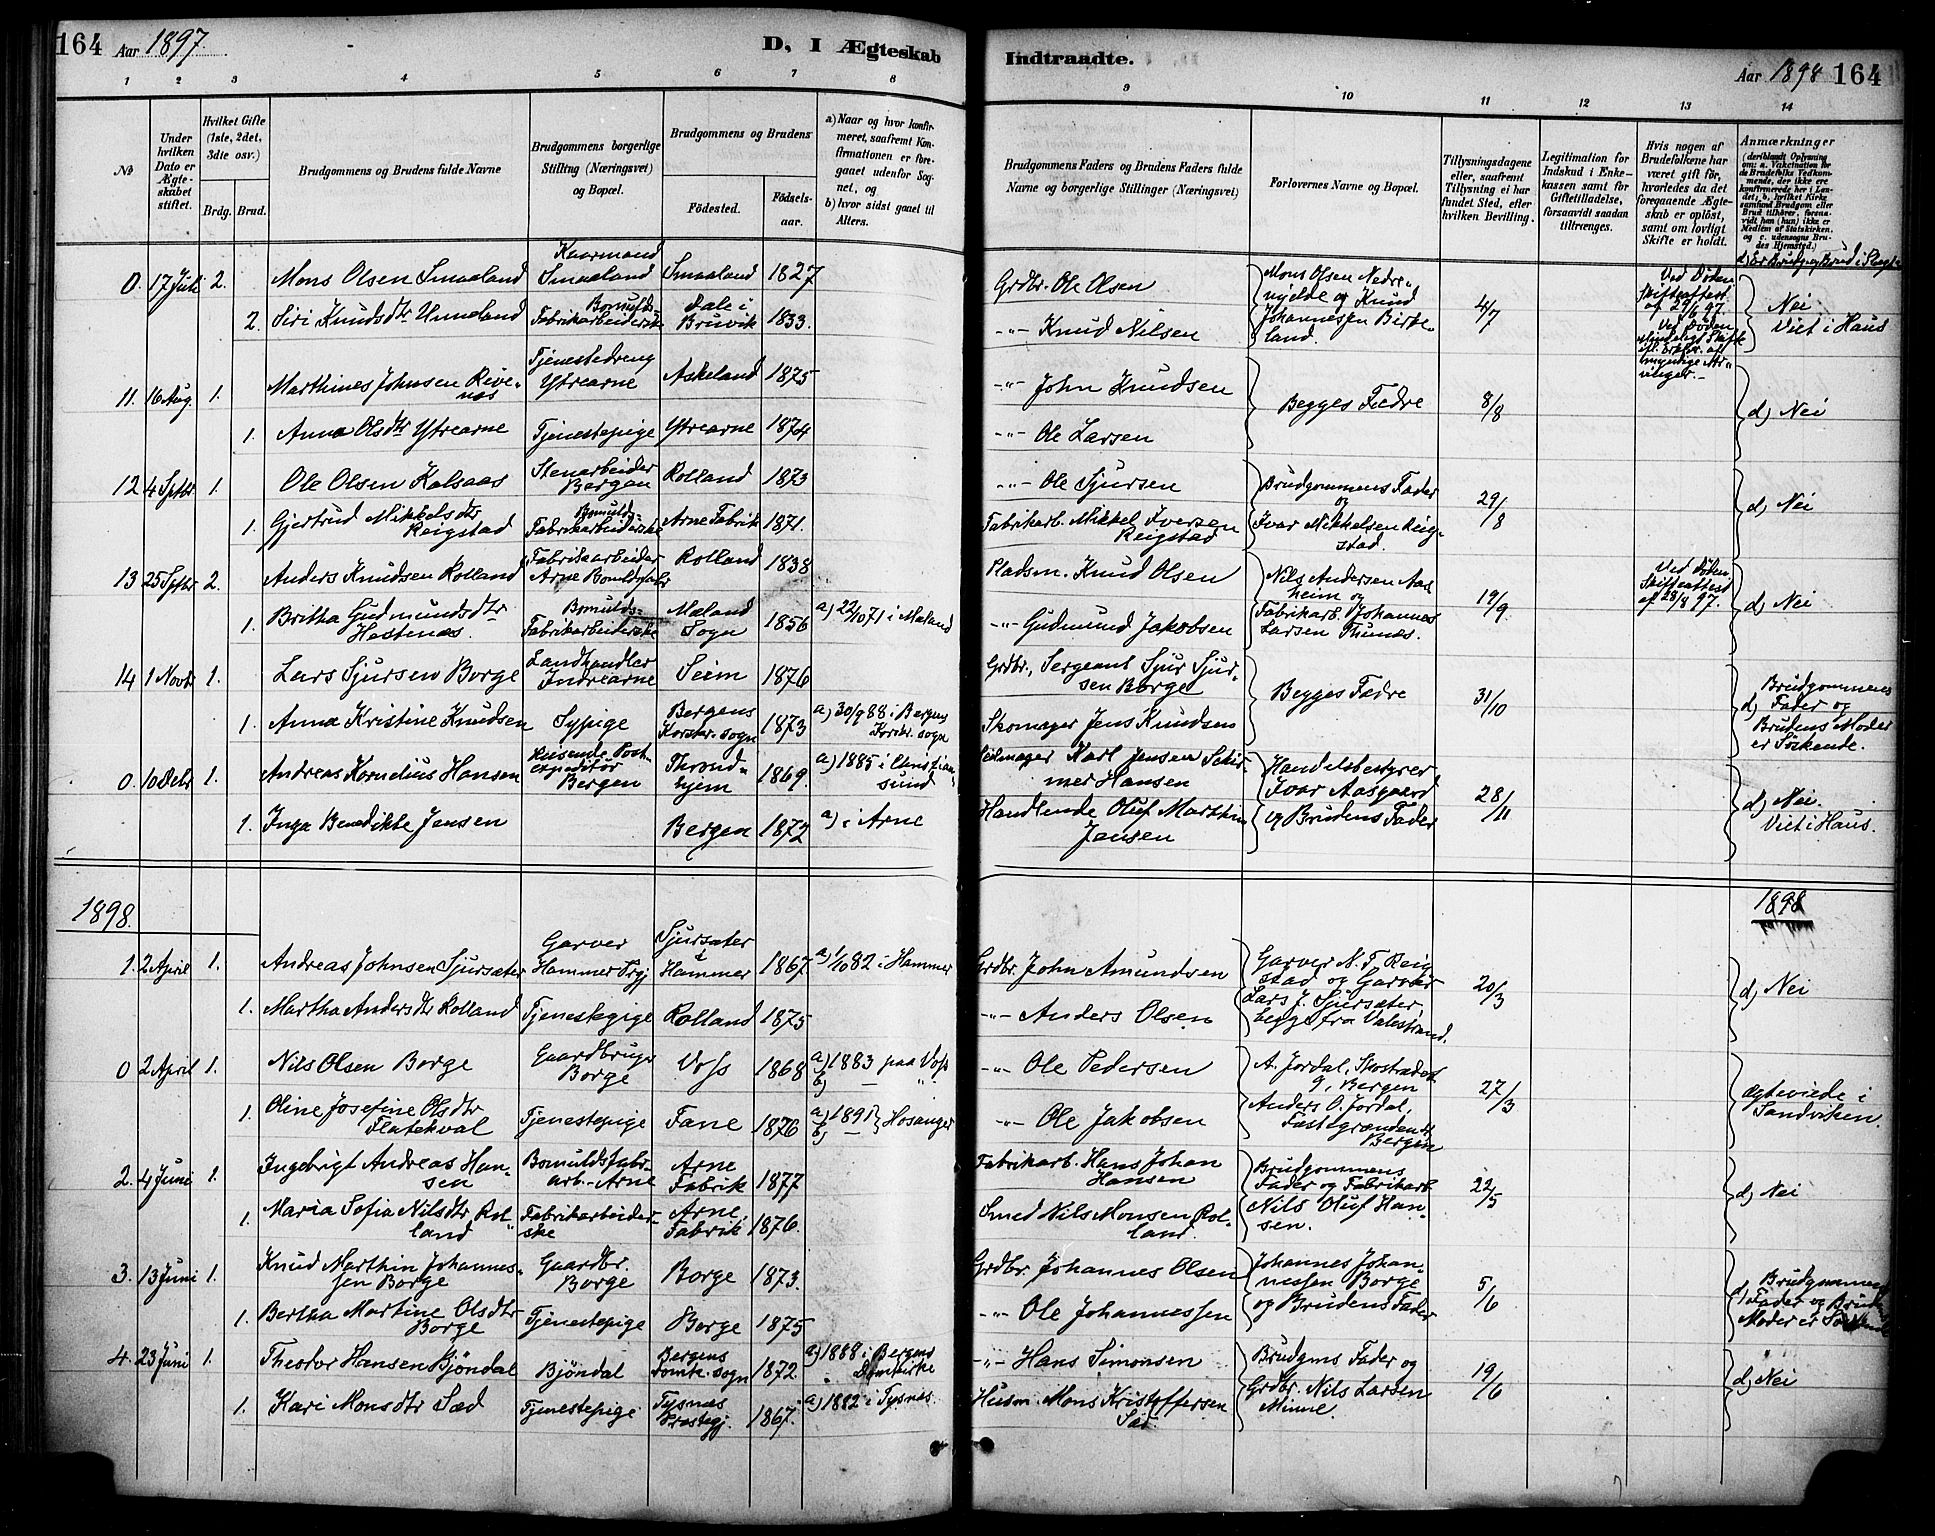 164 Aar 1897.
D, I Ægteskab
Indtraadte.
Aar 1898 164
1 2 3 4 5 6 7 8
9 10 11 12 13 14
No
Under hvilken Dato er Ægteskabet stiftet.
Hvilket Gifte (1ste, 2det, 3die osv.)
Brdg. Brud.
Brudgommens og Brudens fulde Navne
Brudgommens borgerlige Stilling (Næringsvei) og Bopæl.
Brudgommens og Brudens
Födested.
Födselsaar.
a) Naar og hvor konfirmeret, saafremt Konfirmationen er foregaaet udenfor Sognet, og
b) hvor sidst gaaet til Alters.
Brudgommens Faders og Brudens Faders fulde Navne og borgerlige Stillinger (Næringsvei)
Forlovernes Navne og Bopæl.
Tillysningsdagene eller, saafremt Tillysning ei har fundet Sted, efter hvilken Bevilling.
Legitimation for Indskud i Enkekassen samt for Giftetilladelse, forsaavidt saadan tiltrænges.
Hvis nogen af Brudefolkene har været gift för, hvorledes da det foregaaende Ægteskab er oplöst, samt om lovligt Skifte er holdt.
Anmærkninger
(deriblandt Oplysning om: a. Vakcination for de Brudefolks Vedkommende, der ikke ere konfirmerede her i Landet; b. hvilket Kirkesamfund Brudgom eller Brud tilhører, forsaavidt han (hun) ikke er Medlem af Statskirken, og c. udensogns Brudes Hjemsted.)
d) Er Brudg. og Brud i Slægt
0. 17 Juli 2. Mons Olsen Smaaland Kaarmand Smaaland Smaaland 1827 Grdbr. Ole Olsen Mons Olsen Nedre- 4/7 Ved Döden Skifteattest af 29/6 97. Nei
2. Siri Knudsdtr Unneland Bomulds- Fabrikarbeiderske Dale i Bruvik 1833. -"- Knud Nilsen og Knud Johannesen Birkeland. Ved Döden Viet i Haus
11. 16 Aug. 1. Marthines Johnsen Rivenæs Tjenestedreng Ytrearne Askeland 1875 -"- John Knudsen Begges Fædre 8/8 d) Nei
1. Anna Olsdtr Ytrearne Tjenestepige Ytrearne 1874 -"- Ole Larsen
12 4 Septbr 1. Ole Olsen Kalsaas Stenarbeider Bergen Rolland 1873 -"- Ole Sjursen Brudgommens Fader og 29/8 d) Nei
1. Gjertrud Mikkelsdtr Reigstad Bomulds- Fabrikarbeiderske Arne Fabrik 1871. Fabrikarb. Mikkel Iversen Reigstad Ivar Mikkelsen Reigstad.
13 25 Septbr 2. Anders Knudsen Rolland Fabrikarbeider Arne Rolland 1838 Pladsm. Knud Olsen Nils Andersen Aasheim og 19/9. Ved Döden Skifteattest af 28/8 97. d) Nei
1. Britha Gudmundsdtr Hestenæs. Bomulds- Fabrikarbeiderske Mæland Sogn 1856 a) 22/10 71 i Mæland -"- Gudmund Jakobsen Fabrikarb. Johannes Larsen Thunæs.
14 1 Novbr 1. Lars Sjursen Borge Landhandler Indrearne Seim 1876 Grdbr., Sergeant Sjur Sjursen Borge Begges Fædre 31/10 d) Brudgommens Fader og Brudens Moder er Söskende.
1. Anna Kristine Knudsen Sypige Bergens Korskr. sogn 1873 a) 30/9 88 i Bergens Korskr. sogn Skomager Jens Knudsen
0. 10 Debr 1. Andreas Kornelius Hansen Reisende Postexpeditör Bergen Throndhjem 1869. a) 1885 i Christiansund Seilmager Karl Jensen Schirmer Hansen Handelsbestyrer Ivar Aasgaard 28/11 d) Nei. Viet i Haus.
1. Inga Benedikte Jensen Bergen 1872 a) i Arne Handlende Oluf Marthin Jensen og Brudens Fader
1898. 1898
1. 2 April 1. Andreas Johnsen Sjursæter Garver Hammer Prgj Sjursæter i Hammer 1867 a) 1/10 82 i Hammer Grdbr. John Amundsen Garver N. T. Reigstad og Garver 20/3 d) Nei
1. Martha Andersdtr Rolland Tjenestepige Rolland 1875 -"- Anders Olsen Lars J. Sjursæter, begge fra Valestrand.
0 2 April 1. Nils Olsen Borge Gaardbruger Borge Voss 1868 a) b) 1883 paa Voss -"- Ole Pedersen A. Jordal, Skostrædet 9, Bergen 27/3 Ægteviede i Sandviken.
1. Oline Josefine Olsdtr Flatekval Tjenestepige Fane 1876 a) b) 1891 Hosanger -"- Ole Jakobsen Anders O. Jordal, Bergen
2. 4 Juni 1. Ingebrigt Andreas Hansen Bomuldsfabr. arb. - Arne Arne Fabrik 1877 Fabrikarb. Hans Johan Hansen Brudgommens Fader og Fabrikarb. 22/5 d) Nei
1. Maria Sofia Nilsdtr Rolland Fabrikarbeiderske Arne Fabrik 1876. Smed Nils Monsen Rolland. Nils Oluf Hansen.
3. 13 Juni 1. Knud Marthin Johannessen Borge Gaardbr. Borge Borge 1873. Grdbr. Johannes Olsen Johannes Johannessen Borge 5/6 d) Brudgommens Fader og Brudens Moder er Söskende
1. Bertha Martine Olsdtr Borge Tjenestepige Borge 1875 -"- Ole Johannessen og Brudens Fader
4. 23 Juni 1. Theodor Hansen Bjöndal Bjöndal Bergens Domk. sogn 1872 a) 1888 i Bergens Domkirke -"- Hans Simonsen Brudgms Fader og 19/6 d) Nei
1. Kari Monsdtr Sæd Tjenestepige Tysnæs Prestegj. 1867. a) 1882 i Tysnæs. Husm. Mons Kristoffersen Sæd Grdbr. Nils Larsen Minne.